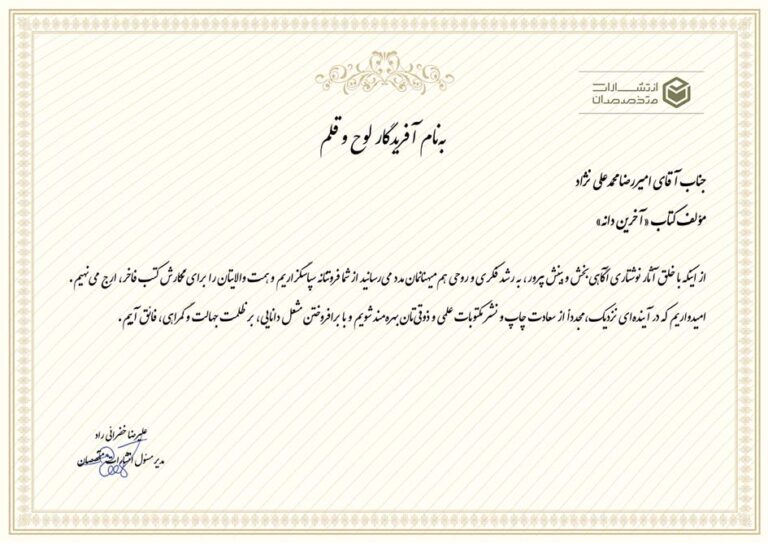 انتشارات
متخصصان
به‌نام آفریدگار لوح و قلم
جناب آقای امیررضا محمدعلی نژاد
مؤلف کتاب «آخرین دانه»
از اینکه با خلق آثار نوشتاری آگاهی بخش و بینش پرور، به رشد فکری و روحی هم میهنانمان مدد می‌رسانید از شما فروتنانه سپاسگزاریم و همت والایتان را برای نگارش کتب فاخر، ارج می نهیم.
امیدواریم که در آینده‌ای نزدیک، مجدداً از سعادت چاپ و نشر مکتوبات علمی و ذوقی‌تان بهره مند شویم و با برافروختن مشعل دانایی، بر ظلمت جهالت و گمراهی، فائق آییم.
علیرضا خفرائی راد
مدیر مسئول انتشارات متخصصان